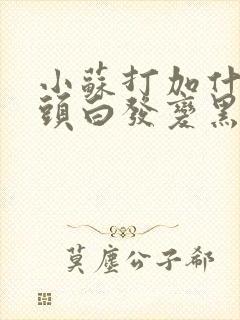 小蘇打加什
頭白發變黑
莫塵公子郗